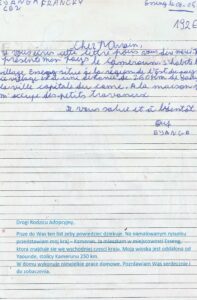 EYANGA FRANCKY
CE2
192€
Cher Parrain,
présente mon pays le Cameroun
village Eseng situé à la région de l'Est du pays
village est à une distance de 260 km de
ville capitale du Came. A la maison
m'occupe des petits travaux.
Je vous salue et à bientôt
Drogi Rodzicu Adopcyjny,
Pisze do Was ten list żeby powiedzieć dziękuje. Na namalowanym rysunku
przedstawiam mój kraj – Kamerun. Ja mieszkam w miejscowości Eseng,
która znajduje się we wschodniej części kraju. Moja wioska jest oddalona od
Yaounde, stolicy Kamerunu 260 km.
W domu wykonuje niewielkie prace domowe. Pozdrawiam Was serdecznie i
do zobaczenia.